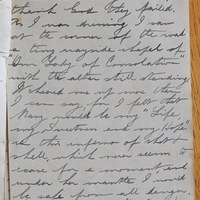 thank God they failed.
As I was running I saw
at the corner of the road
a tiny wayside chapel of
"Our Lady of Consolation"
with the altar still standing.
It cheered me up more than
I can say for I felt that
Mary would be my "Life,
my Sweetness and my Hope"
in this inferno of shot &
shell, which now seems to
cease for a moment and
under her mantle I would
be safe from all danger.